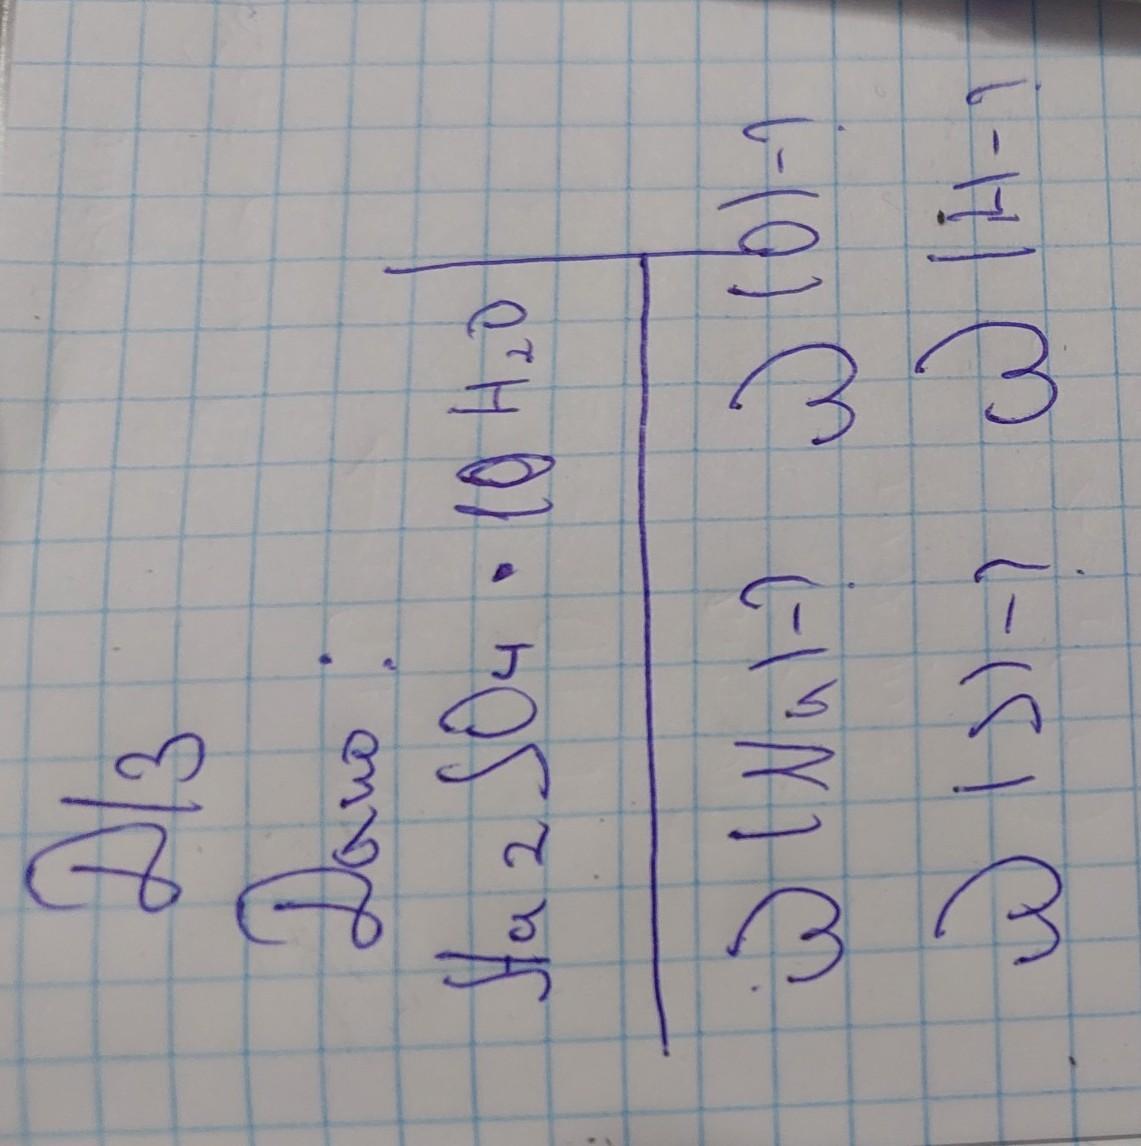 Д/З
Дано:
Na2SO4 • 10 H2O
ω (Na) - ? ω (O) - ?
ω (S) - ? ω (H) - ?